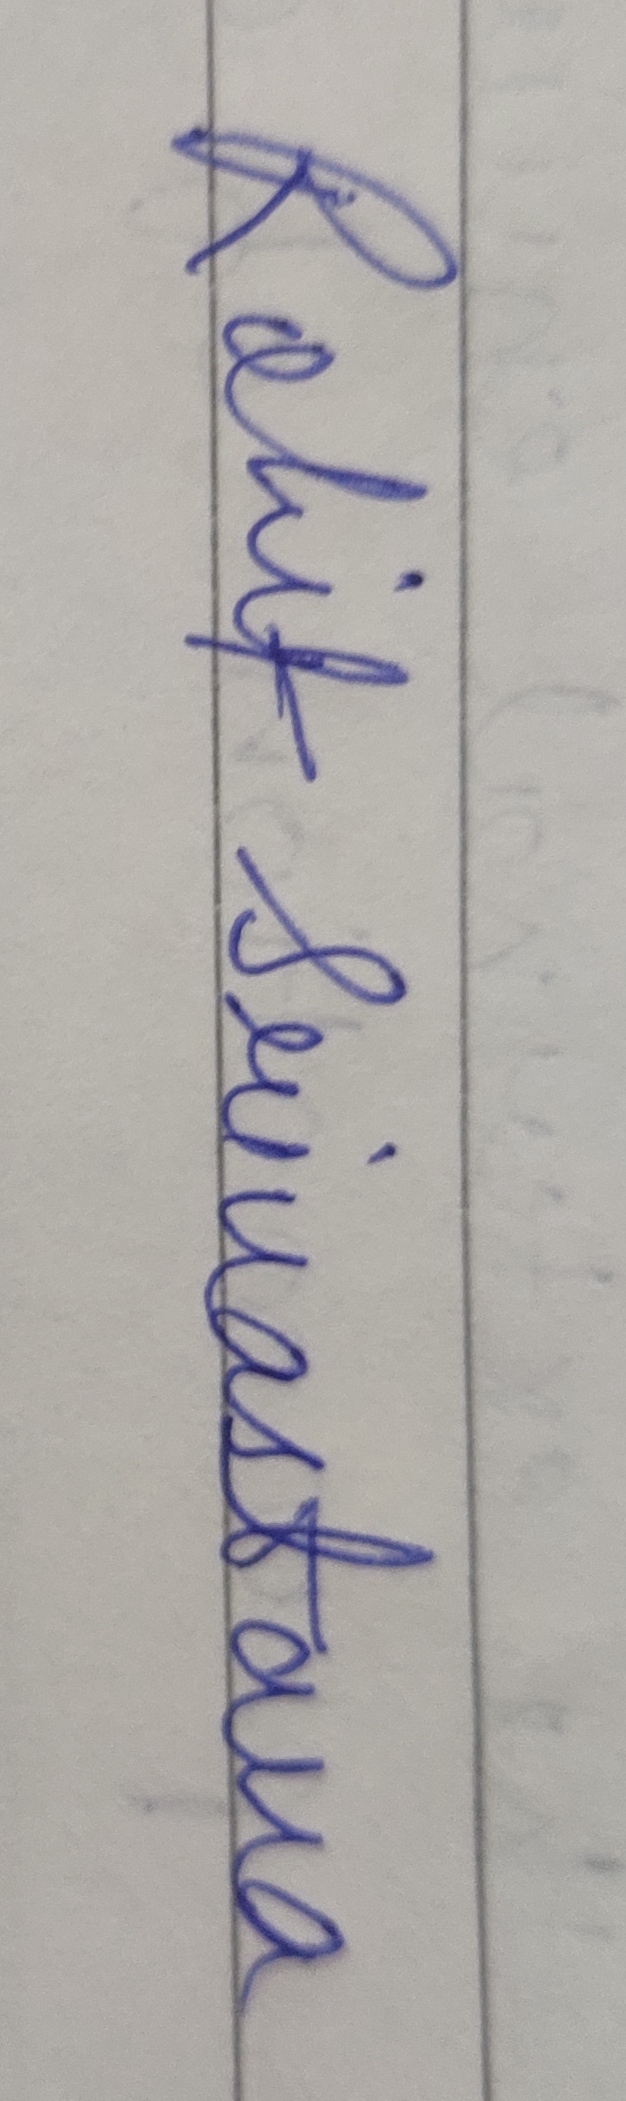 Rohit Srivastava